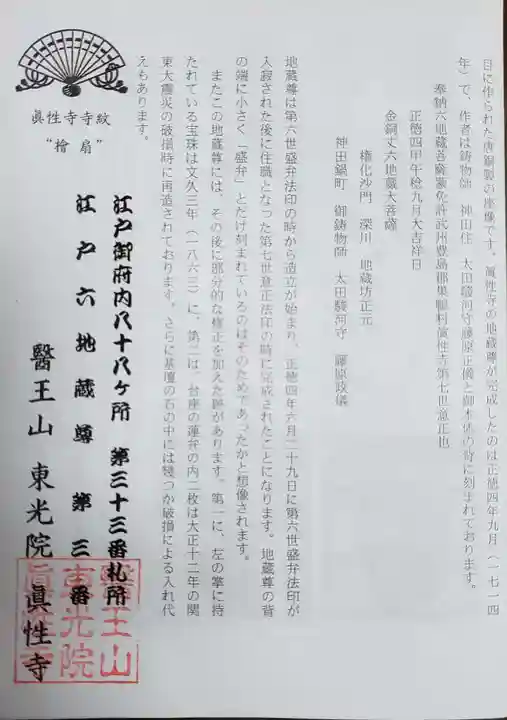 日に作られた唐銅製の座像です。眞性寺の地蔵尊が完成したのは正徳四年九月（一七一四
年）で、作者は鋳物師　神田住　太田駿河守藤原正儀と御本体の背に刻まれております。
奉納六地蔵菩薩蒙免許武州豊島郡巣鴨村眞性寺第七世意正也
正徳四甲午稔九月大吉祥日
金銅丈六地蔵大菩薩
権化沙門　深川　地蔵坊正元
神田鍋町　御鋳物師　太田駿河守　藤原政儀
地蔵尊は第六世盛弁法印の時から造立が始まり、正徳四年六月二十九日に第六世盛弁法印が
入寂された後に住職となった第七世意正法印の時に完成されたことになります。地蔵尊の背
の端に小さく「盛弁」とだけ刻まれているのはそのためであったかと想像されます。
またこの地蔵尊には、その後に部分的な修正を加えた跡があります。第一に、左の掌に持
たれている宝珠は文久三年（一八六三）に、第二は、台座の蓮弁の内二枚は大正十二年の関
東大震災の破損時に再造されております。さらに基壇の石の中には幾つか破損による入れ代
えもあります。
眞性寺寺紋
“檜扇”
江戸御府内八十八ヶ所　第三十三番札所
江戸六地蔵尊　第三番
醫王山　東光院　眞性寺
醫王山
東光院
眞性寺